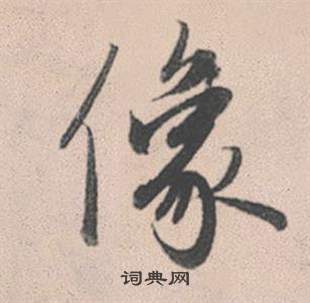 像
词典网